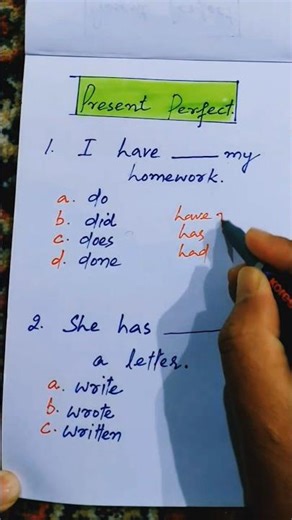 Present Perfect.
1. I have ___ my
homework.
a. do
b. did
c. does
d. done
have
has
had
2. She has ___
a letter.
a. write
b. wrote
c. written